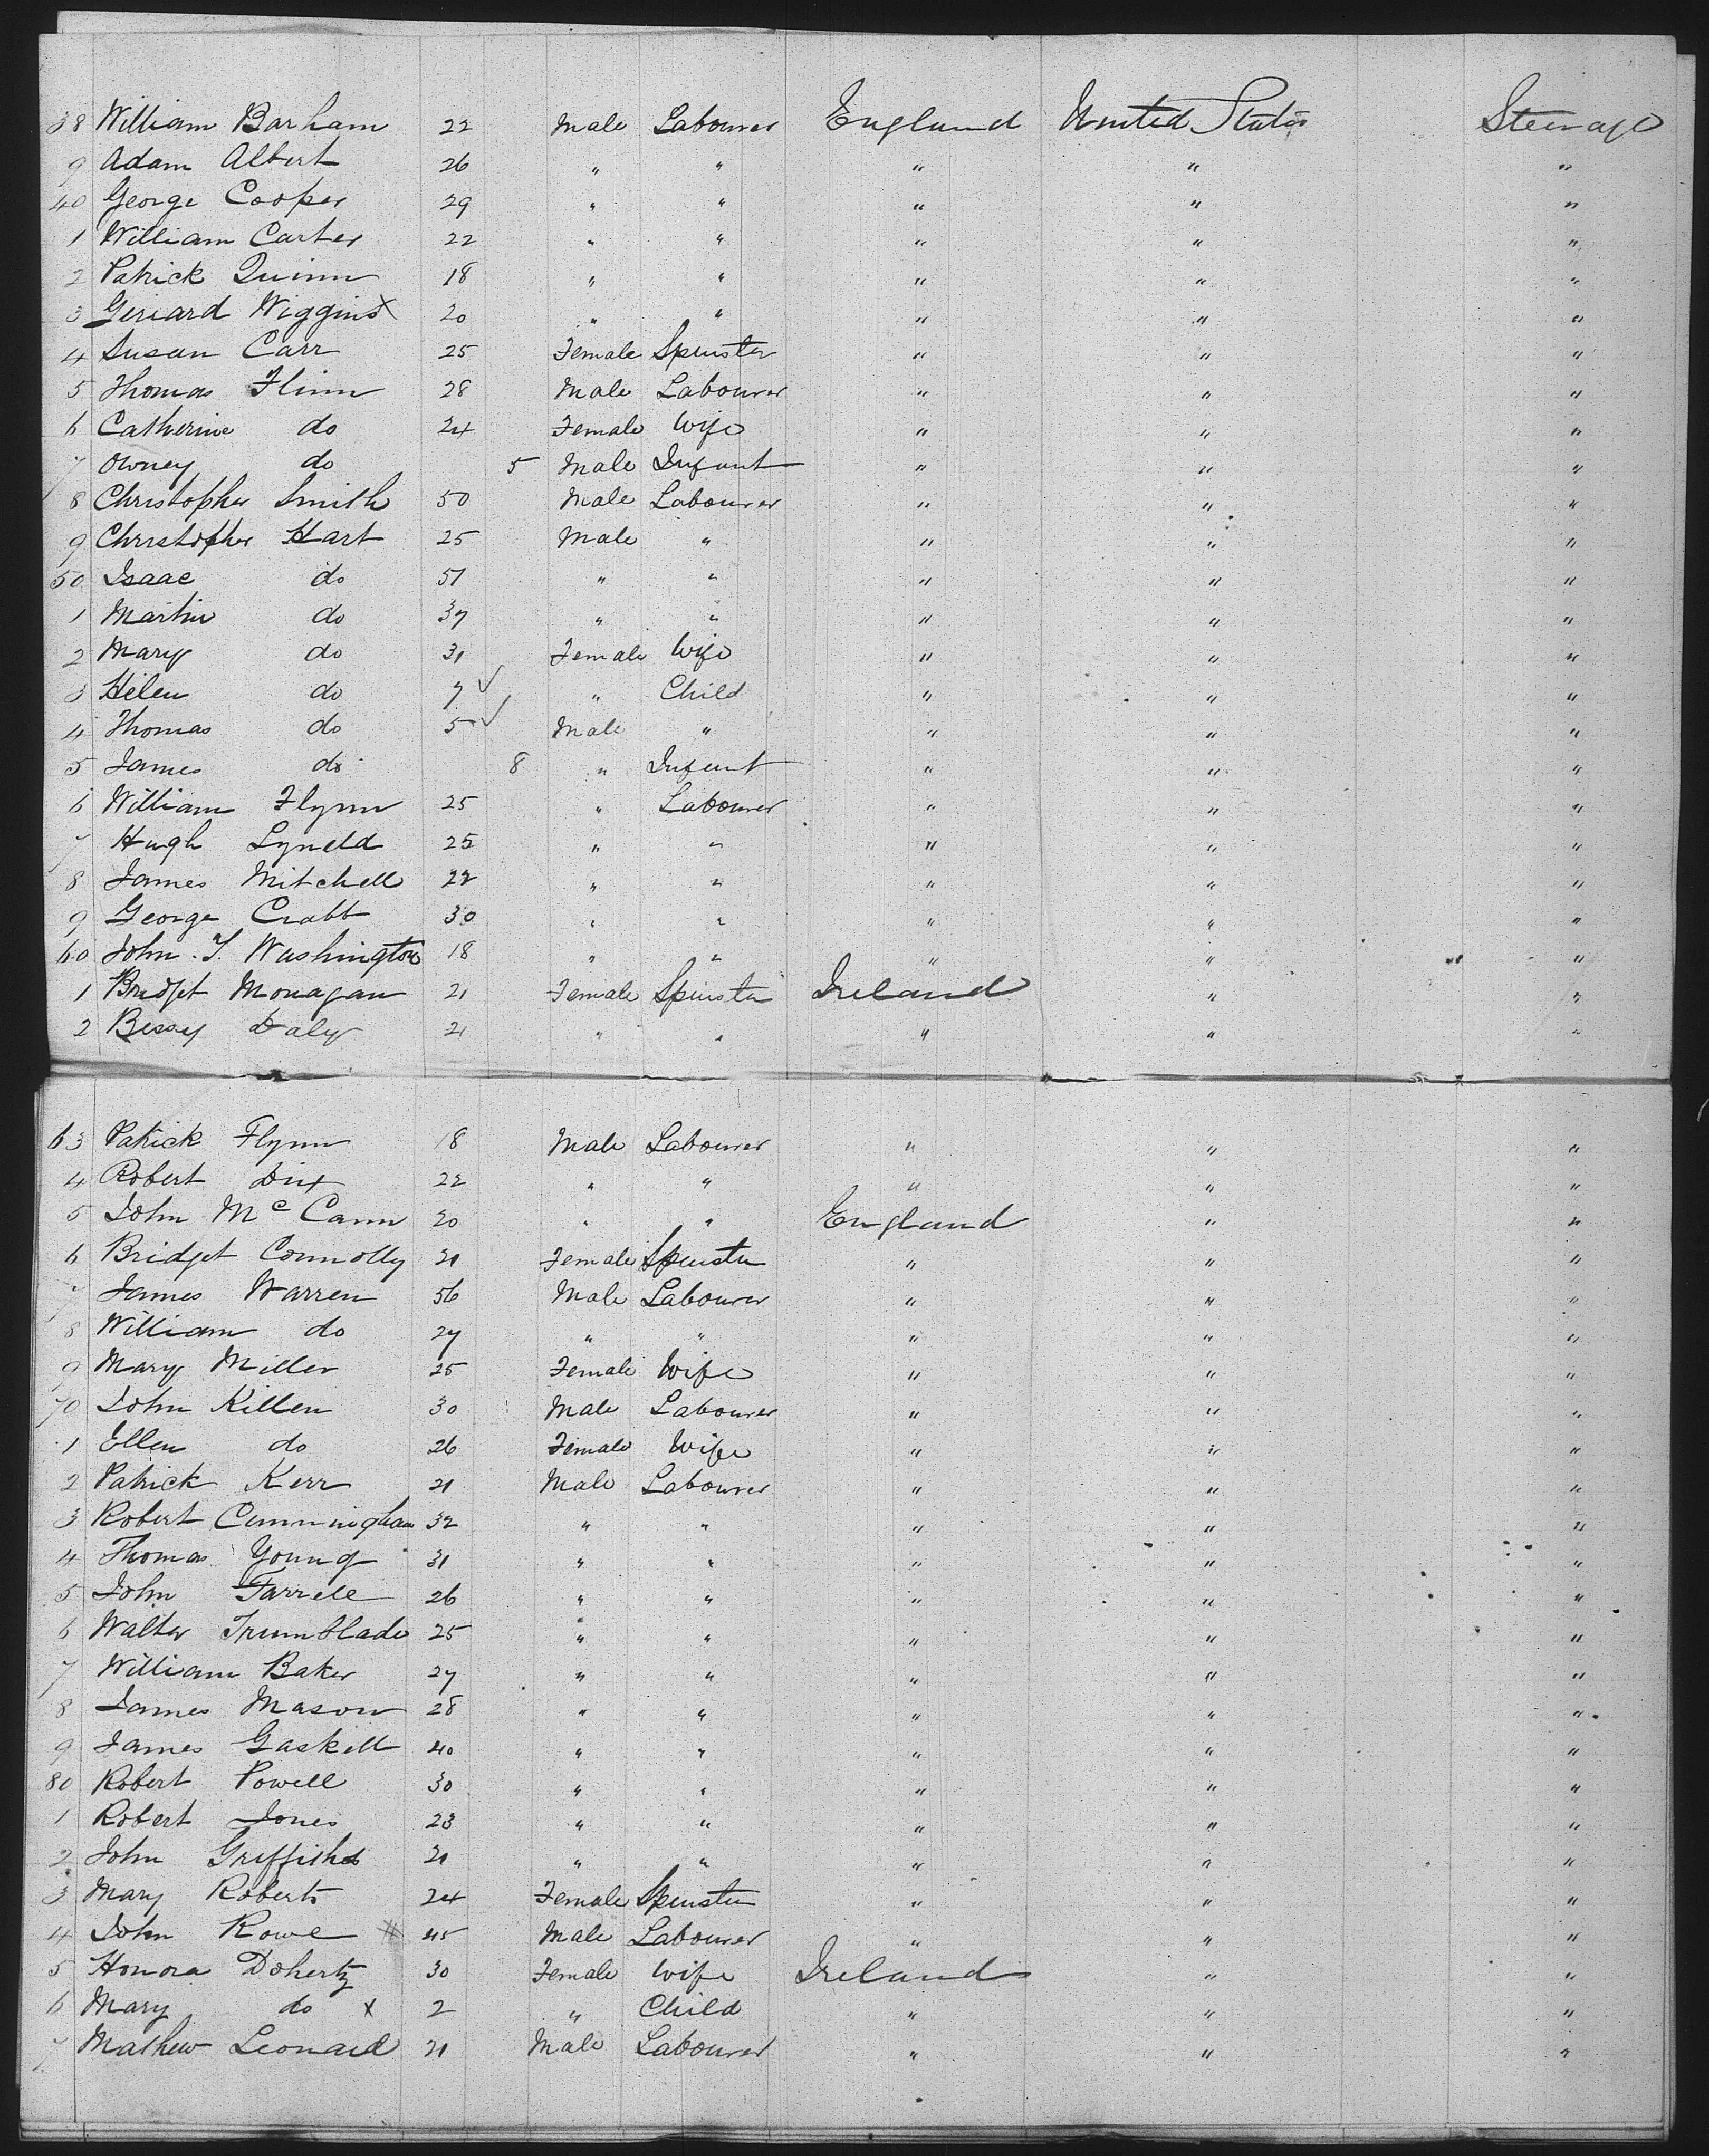 38 William Barham 22 Male Labourer England United States Steerage
9 Adam Albert 26 " " " " "
40 George Cooper 29 " " " " "
1 William Carter 22 " " " " "
2 Patrick Quinn 18 " " " " "
3 Geriard Wiggins x 20 " " " " "
4 Susan Carr 25 Female Spinster " " "
5 Thomas Flinn 28 Male Labourer " " "
6 Catherine do 24 Female Wife " " "
7 Owney do 5 Male Infant " " "
8 Christopher Smith 50 Male Labourer " " "
9 Christopher Hart 25 Male " " " "
50 Isaac do 51 " " " " "
1 Martin do 37 " " " " "
2 Mary do 31 Female Wife " " "
3 Helen do 7 ✓ " Child " " "
4 Thomas do 5 ✓ Male " " " "
5 James do 8 " Infant " " "
6 William Flynn 25 " Labourer " " "
7 Hugh 25 " " " " "
8 James Mitchell 22 " " " " "
9 George Crabb 30 " " " " "
60 John T. Washington 18 " " " " "
1 Bridget Monagan 21 Female Spinster Ireland " "
2 Bessy Daly 21 " " " " "
63 Patrick Flynn 18 Male Labourer " " "
4 Robert Dix 22 " " " " "
5 John McCann 20 " " England " "
6 Bridget Connolly 21 Female Spinster " " "
7 James Warren 56 Male Labourer " " "
8 William do 27 " " " " "
9 Mary Miller 25 Female Wife " " "
70 John Killen 30 Male Labourer " " "
1 Ellen do 26 Female Wife " " "
2 Patrick Kerr 21 Male Labourer " " "
3 Robert Cunningham 32 " " " " "
4 Thomas Young 31 " " " " "
5 John Farrell 26 " " " " "
6 Walter 25 " " " " "
7 William Baker 27 " " " " "
8 James Mason 28 " " " " "
9 James Gaskell 40 " " " " "
80 Robert Powell 30 " " " " "
1 Robert Jones 23 " " " " "
2 John Griffiths 21 " " " " "
3 Mary Roberts 24 Female Spinster " " "
4 John Rowe # 45 Male Labourer " " "
5 Honora Doherty 30 Female Wife Ireland " "
6 Mary do x 2 " Child " " "
7 Mathew Leonard 21 Male Labourer " " "